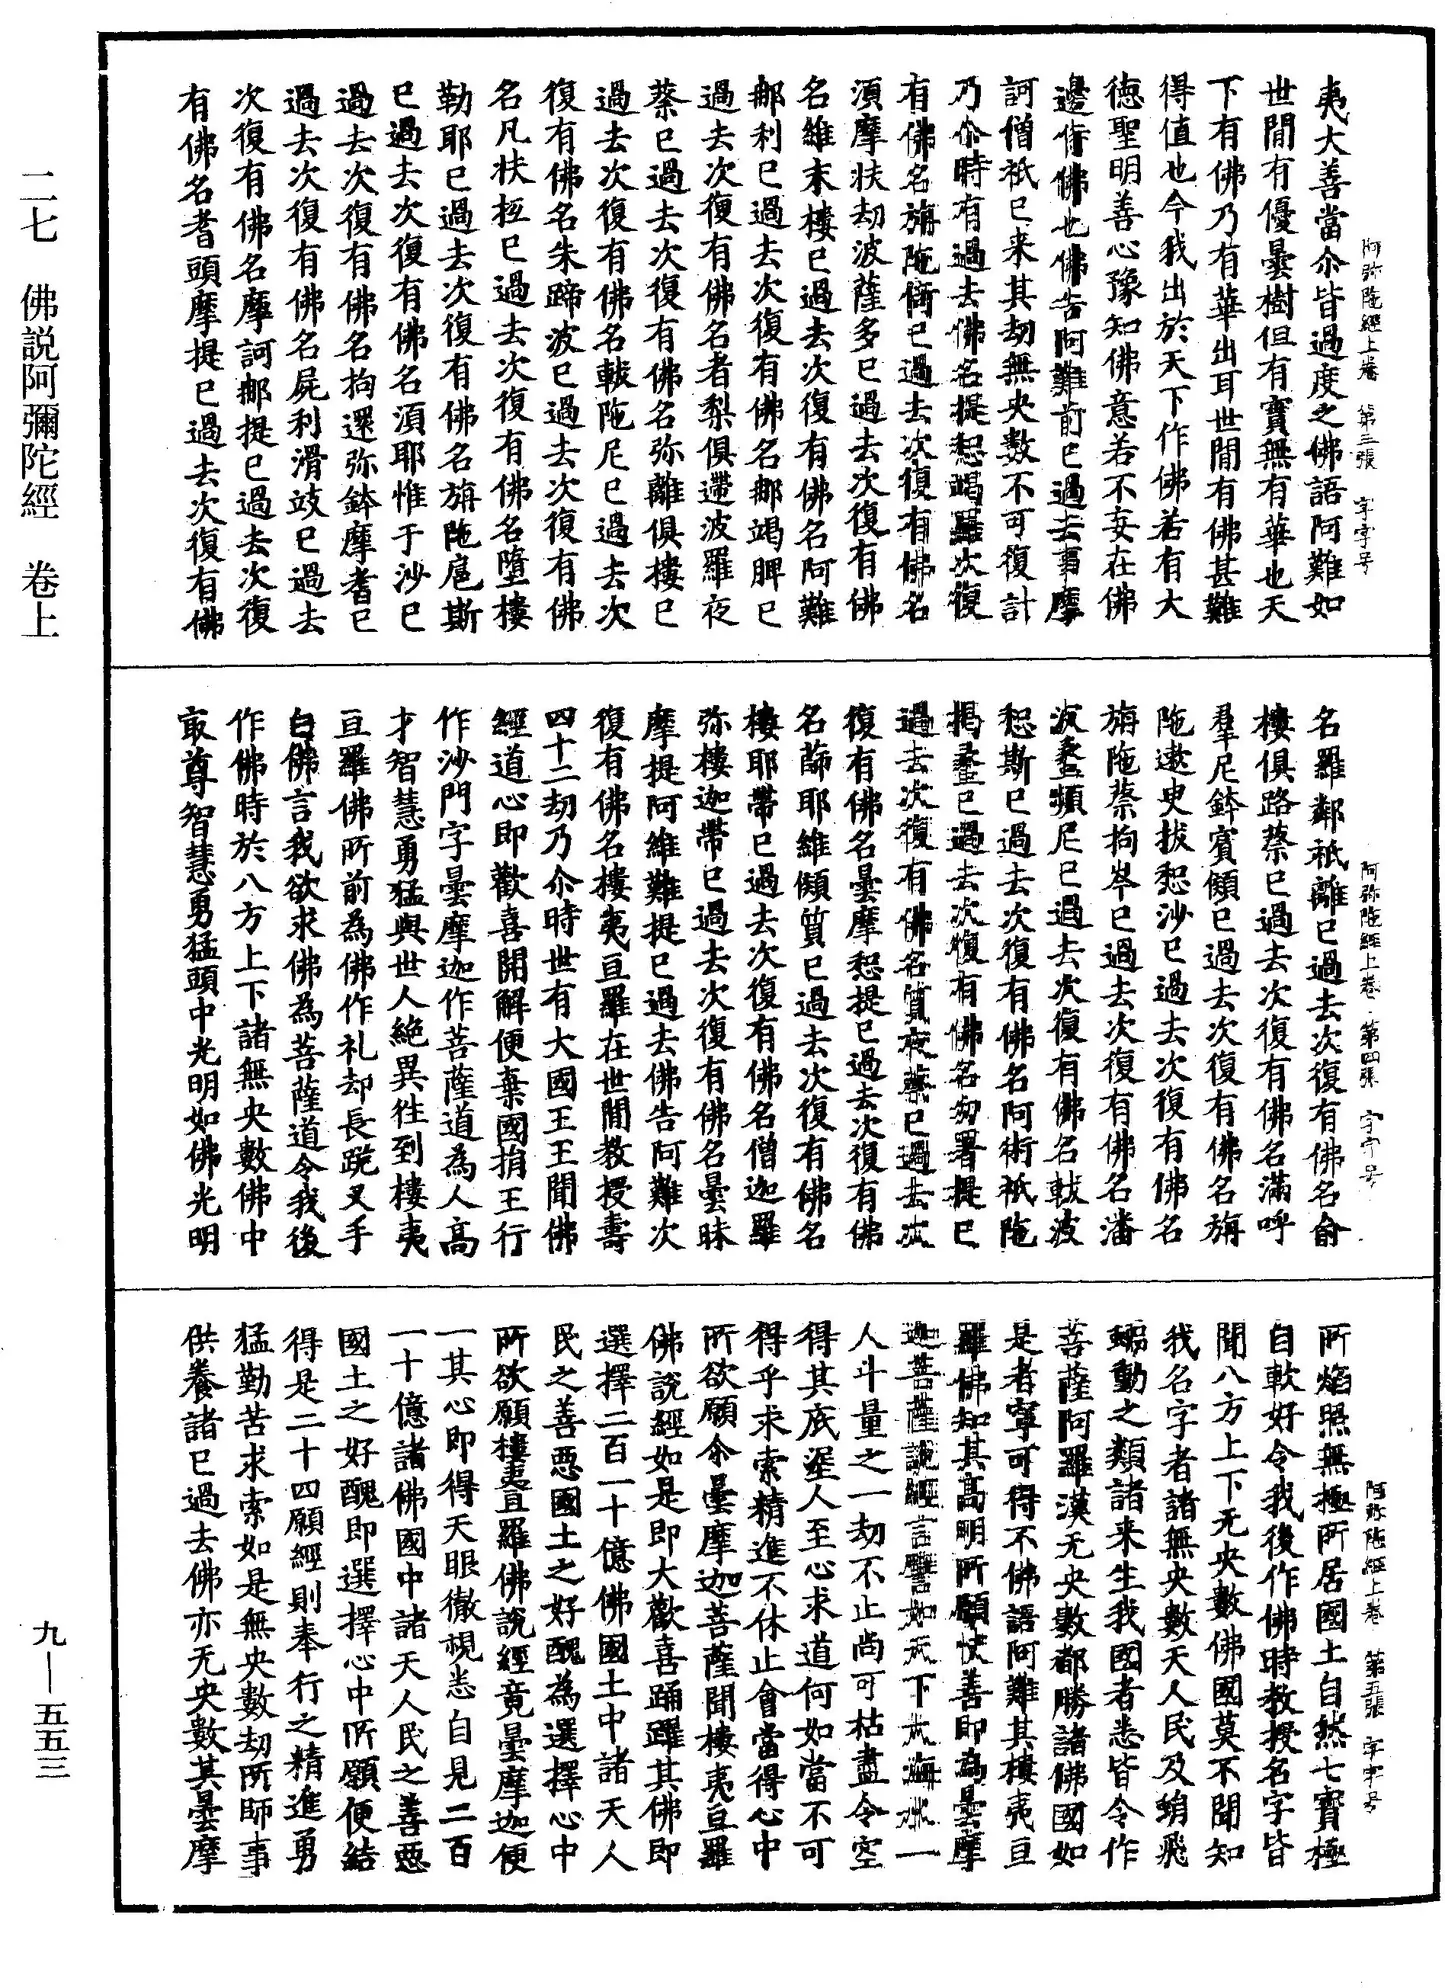 夷大善當尒皆過度之佛語阿難如
世間有優曇樹但有實無有華也天
下有佛乃有華出耳世間有佛甚難
得值也今我出於天下作佛若有大
徳聖明善心豫知佛意若不妄在佛
邊侍佛也佛告阿難前已過去事摩
訶僧祇已来其劫無央數不可復計
乃尒時有過去佛名提惒竭羅次復
有佛名旃陁倚已過去次復有佛名
湏摩扶劫波薩多已過去次復有佛
名維末樓已過去次復有佛名阿難
那利已過去次復有佛名那竭脾已
過去次復有佛名者梨俱遰波羅夜
蔡已過去次復有佛名弥離俱樓已
過去次復有佛名軷陁尼已過去次
復有佛名朱蹄波已過去次復有佛
名凡扶坻已過去次復有佛名墮樓
勒耶已過去次復有佛名旃陁扈斯
已過去次復有佛名湏耶惟于沙已
過去次復有佛名拘還弥鉢摩耆已
過去次復有佛名屍利滑攱已過去
次復有佛名摩訶那提已過去次復
有佛名耆頭摩提已過去次復有佛
名羅鄰祇離已過去次復有佛名俞
樓俱路蔡已過去次復有佛名滿呼
羣尼鉢賓傾已過去次復有佛名旃
陁遬臾拔惒沙已過去次復有佛名
旃陁蔡拘岑已過去次復有佛名潘
波蠡頻尼已過去次復有佛名軷波
惒斯已過去次復有佛名阿術祇陁
揭蠡已過去次復有佛名勿署提已
過去次復有佛名質夜蔡已過去次
復有佛名曇摩惒提已過去次復有佛
名篩耶維傾質已過去次復有佛名
樓耶帶已過去次復有佛名僧迦羅
弥樓迦帶已過去次復有佛名曇昧
摩提阿維難提已過去佛告阿難次
復有佛名樓夷亘羅在世間教授壽
四十二劫乃尒時世有大國王王聞佛
經道心即歡喜開解便棄國捐王行
作沙門字曇摩迦作菩薩道為人高
才智慧勇猛與世人絶異徃到樓夷
亘羅佛所前為佛作礼却長跪叉手
白佛言我欲求佛為菩薩道令我後
作佛時於八方上下諸無央數佛中
㝡尊智慧勇猛頭中光明如佛光明
所焰照無極所居國土自然七寶極
自軟好令我後作佛時教授名字皆
聞八方上下无央數佛國莫不聞知
我名字者諸無央數天人民及蜎飛
蝡動之類諸来生我國者悉皆令作
菩薩阿羅漢无央數都勝諸佛國如
是者寧可得不佛語阿難其樓夷亘
羅佛知其高明所願快善即為曇摩
迦菩薩說經言譬如天下大海水一
人斗量之一劫不止尚可枯盡令空
得其底埿人至心求道何如當不可
得乎求索精進不休止會當得心中
所欲願尒曇摩迦菩薩聞樓夷亘羅
佛說經如是即大歡喜踊躍其佛即
選擇二百一十億佛國土中諸天人
民之善惡國土之好醜為選擇心中
所欲願樓夷亘羅佛說經竟曇摩迦便
一其心即得天眼徹視悉自見二百
一十億諸佛國中諸天人民之善惡
國土之好醜即選擇心中所願便結
得是二十四願經則奉行之精進勇
猛勤苦求索如是無央數劫所師事
供養諸已過去佛亦无央數其曇摩
阿弥陁經上卷　第三張　字字号
阿弥陁經上卷　第四張　字字号
阿弥陁經上卷　第五張　字字号
二七　佛説阿彌陀經　卷上
九—五五三